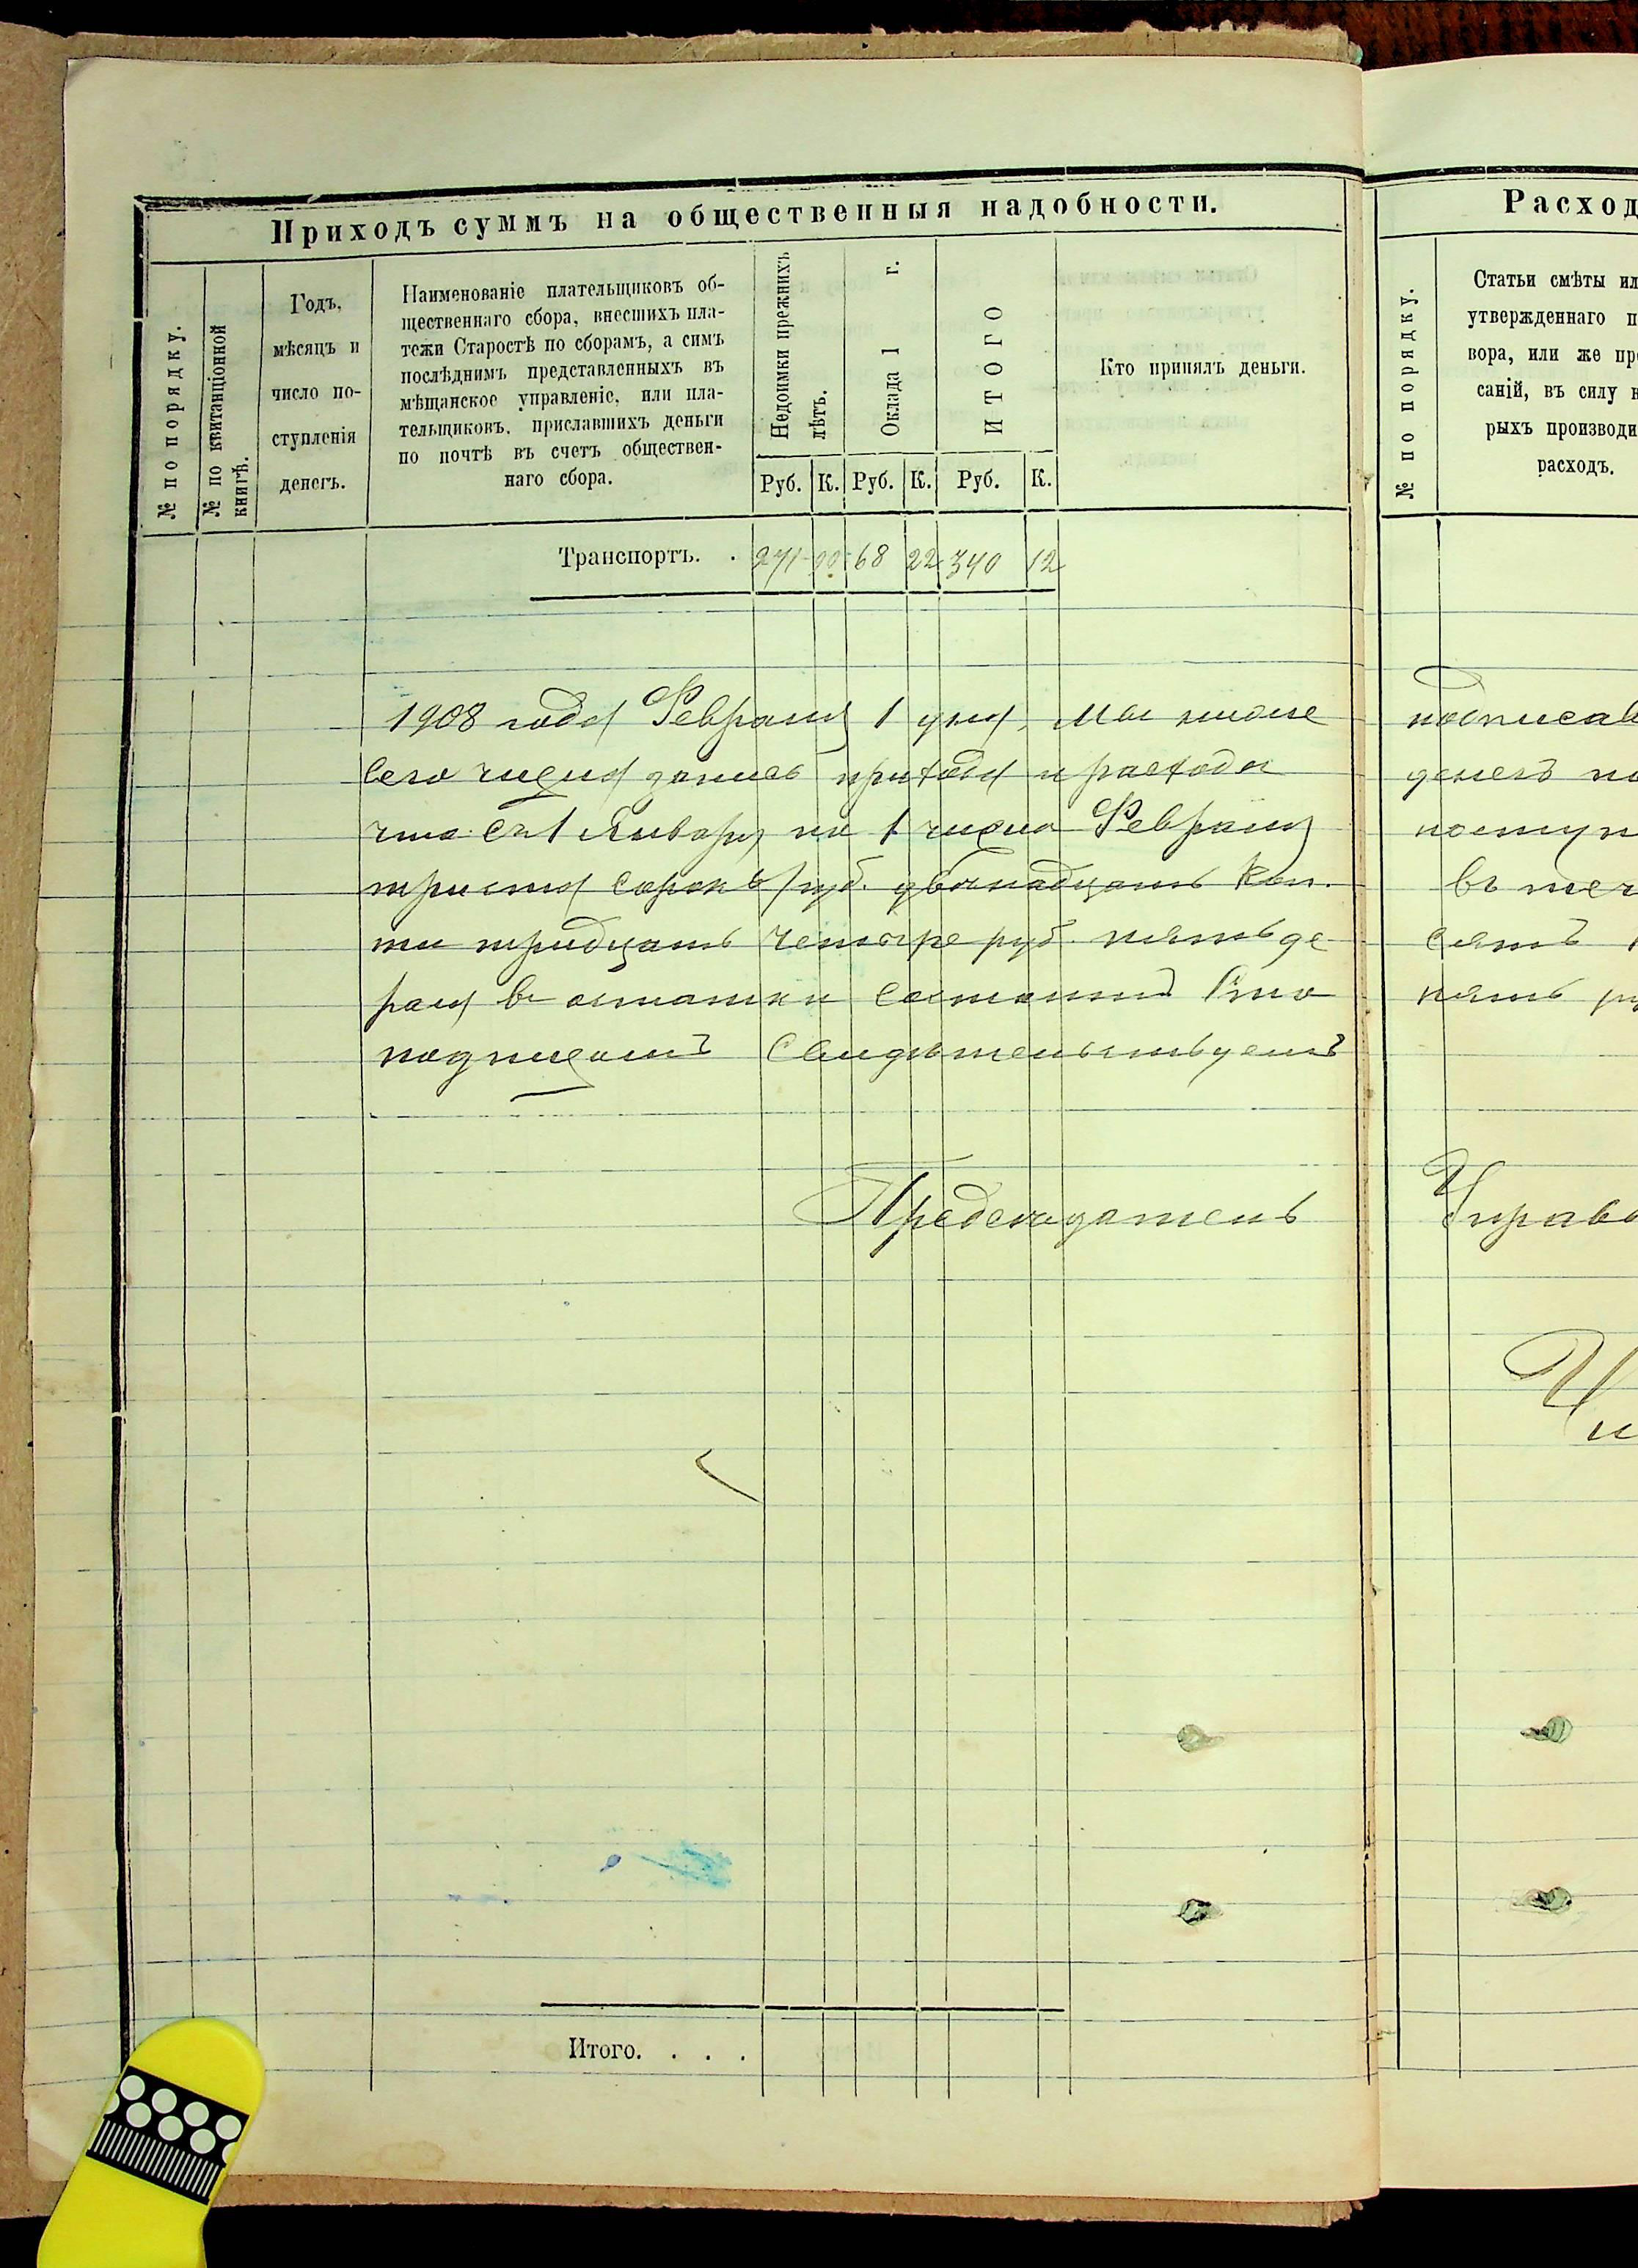 Приходъ суммъ на общественныя надобности.
№ по порядку.
№ по квитанціонной
книгѣ.
Годъ,
мѣсяцъ и
число по-
ступленія
денегъ.
Наименованіе плательщиковъ об-
щественнаго сбора, внесшихъ пла-
тежи Старостѣ по сборамъ, а симъ
послѣднимъ представленныхъ въ
мѣщанское управленіе, или пла-
тельщиковъ, приславшихъ деньги
по почтѣ въ счетъ обществен-
наго сбора.
Недоимки прежнихъ
лѣтъ.
Оклада 1 г.
ИТОГО
Кто принялъ деньги.
Руб. К. Руб. К. Руб. К.
Транспортъ. . 271 90 68 22 340 12
1908 года Февраля 1 дня, мы ниже
сего числа запись прихода и расхода
что съ 1 Января по 1 число Февраля
триста сорокъ руб. двенадцать коп.
ти тридцать четыре руб. пять де
раля въ остатки
подписомъ свидетельствуемъ
Председатель
Итого. . . .
Расход
№ по порядку.
Статьи смѣты ил
утвержденнаго п
вора, или же пре
саній, въ силу к
рыхъ производи
расходъ.
подписав
денегъ по
поступ
въ теч
сятъ
пять ру
Управ